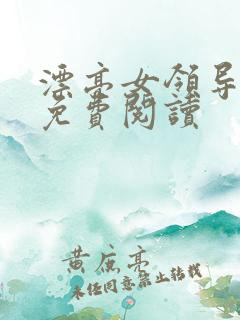 漂亮女領导
免費閱讀
黄庶亮
未经同意禁止转载